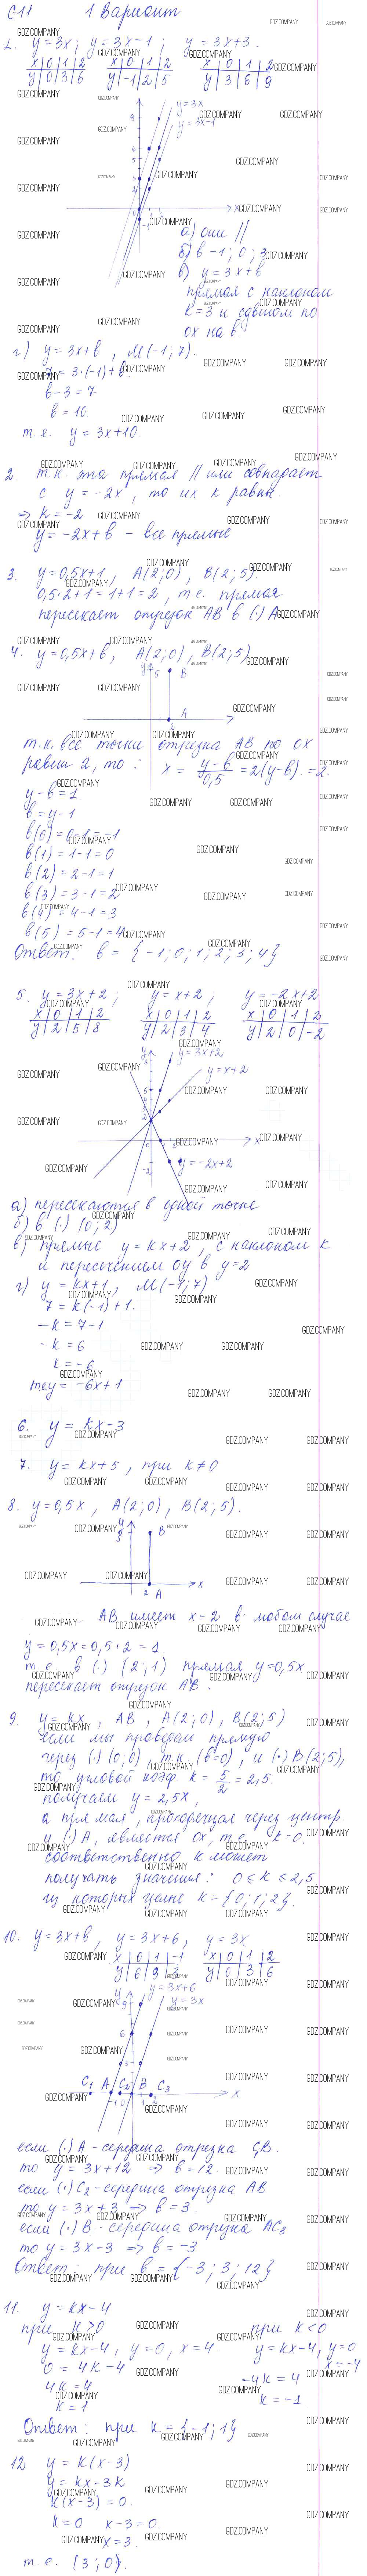 С11 1 Вариант
1. y=3x; y=3x-1; y=3x+3.
x|0|1|2 x|0|1|2 x|0|1|2
y|0|3|6 y|-1|2|5 y|3|6|9
y=3x
y=3x-1
а) они //
б) b -1; 0; 3
в) y=3x+b
прямая с наклоном
k=3 и сдвигом по
ох на b.
г) y=3x+b, M(-1;7).
7=3·(-1)+b.
b-3=7
b=10.
т.е. y=3x+10.
2. т.к. эта прямая // или совпадает
с y=-2x, то их k равны.
=> k=-2
y=-2x+b - все прямые
3. y=0,5x+1, A(2;0), B(2;5).
0,5·2+1=1+1=2, т.е. прямая
пересекает отрезок AB в (·) A
4. y=0,5x+b, A(2;0), B(2;5)
y 5 B
A
2
т.к. все точки отрезка AB по ох
равны 2, то: x = y-b/0,5 =2(y-b).=2.
y-b=1.
b=y-1
b(0)=0-1=-1
b(1)=1-1=0
b(2)=2-1=1
b(3)=3-1=2
b(4)=4-1=3
b(5)=5-1=4
Ответ: b={-1;0;1;2;3;4}
5. y=3x+2; y=x+2; y=-2x+2
x|0|1|2 x|0|1|2 x|0|1|2
y|2|5|8 y|2|3|4 y|2|0|-2
y=3x+2
y=x+2
y=-2x+2
а) пересекаются в одной точке
б) в (·) (0;2)
в) прямые y=kx+2, с наклоном k
и пересечением oy в y=2
г) y=kx+1, M(-1;7)
7=k(-1)+1.
-k=7-1
-k=6
k=-6
т.е y=-6x+1
6. y=kx-3
7. y=kx+5, при k≠0
8. y=0,5x, A(2;0), B(2;5).
y 5 B
2 A x
AB имеет x=2 в любом случае
y=0,5x=0,5·2=1
т.е. в (·) (2;1) прямая y=0,5x
пересекает отрезок AB.
9. y=kx, AB, A(2;0), B(2;5)
если мы проведем прямую
через (·) (0;0), т.к. (b=0), и (·) B(2;5),
то угловой коэф. k=5/2=2,5.
получаем y=2,5x,
а прямая, проходящая через центр.
и (·) A, является ох, т.е. k=0.
соответственно k может
получать значения: 0≤k≤2,5
из которых целые k={0;1;2}.
10. y=3x+b, y=3x+6, y=3x
x|0|1|-1 x|0|1|2
y|6|9|3 y|0|3|6
y=3x+6
y=3x
C1 A C2 B C3 x
если (·) A - середина отрезка C1B.
то y=3x+12 => b=12.
если (·) C2 - середина отрезка AB
то y=3x+3 => b=3.
если (·) B - середина отрезка AC3
то y=3x-3 => b=-3
Ответ: при b={-3;3;12}
11. y=kx-4
при k>0 при k<0
y=kx-4, y=0, x=4. y=kx-4, y=0
x=-4
0=4k-4 -4k=4
4k=4 k=-1
k=1
Ответ: при k={-1;1}
12 y=k(x-3)
y=kx-3k
k(x-3)=0.
k=0 x-3=0.
x=3.
т.е. (3;0).